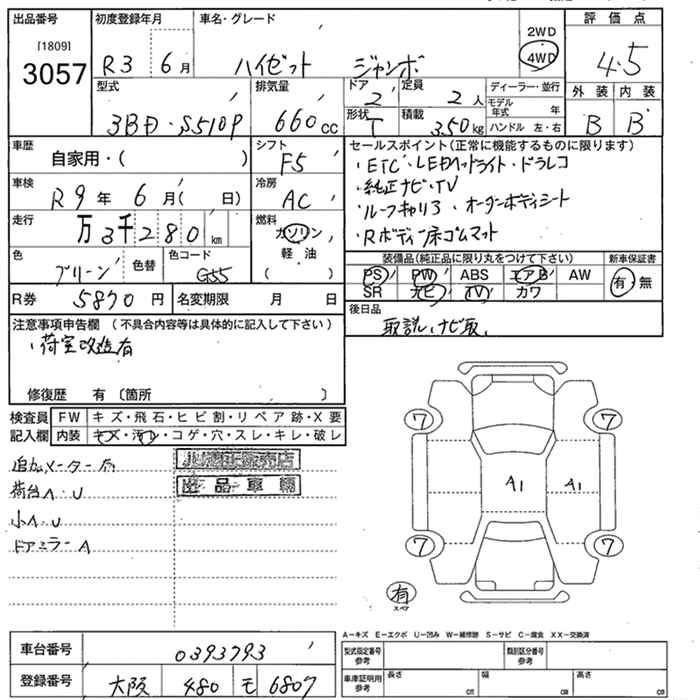 出品番号 初度登録年月 車名・グレード 2WD 評価点
[1809]
3057 R3 6月 ハイゼット ジャンボ 4WD 4.5
型式 排気量 ドア 定員 ディーラー・並行 外装 内装
2 2人 モデル年式 年
3BD-S510P 660cc 形状 T 積載 350kg ハンドル 左・右 B B
車歴 シフト セールスポイント(正常に機能するものに限ります)
自家用・( ) F5 ・ETC・LEDヘッドライト・ドラレコ
車検 冷房 ・純正ナビ・TV
R9年 6月( 日) AC ・ルーフキャリア・オーダーボディシート
走行 燃料 ・Rボディー床ゴムマット
万3千280km ガソリン
軽油
( )
色 色替 色コード 装備品(純正品に限り丸をつけて下さい) 新車保証書
グリーン G55 PS PW ABS エアB AW 有・無
SR ナビ TV カワ
R券 5870円 名変期限 月 日 後日品
取説、ナビ取
注意事項申告欄(不具合内容等は具体的に記入して下さい)
・荷室改造有
修復歴 有(箇所 )
検査員 FW キズ・飛石・ヒビ割・リペア跡・X要
記入欄 内装 キズ・汚レ・コゲ・穴・スレ・キレ・破レ
追加メーター有
荷台A・U 出品車輛
小A・U
ドアミラーA
7 7
A1 A1
7 7
有
スペア
A-キズ E-エクボ U-凹み W-補修跡 S-サビ C-腐食 XX-交換済
車台番号 0393793 型式指定番号 参考 類別区分番号 参考
登録番号 大阪 480 モ 6807 車庫証明用 参考 長さ cm 幅 cm 高さ cm